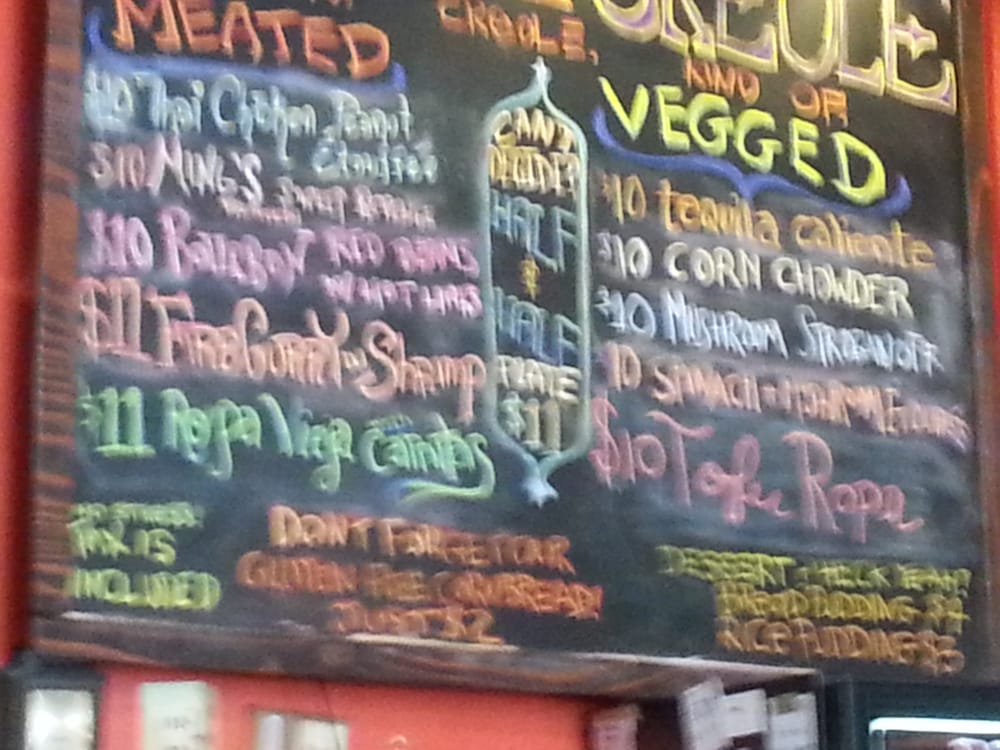 MEATED
CREOLE,
CREOLE
KIND OF
VEGGED
$10 Thai Chicken Peanut
$10
$10 Bourbon RED BEANS
$11 FireCurry Shrimp
$11 Ropa Vieja Carnitas
CAN'T
DECIDE?
HALF
&
HALF
PLATE
$11
$10 tequila caliente
$10 CORN CHOWDER
$10 MUSHROOM STROGANOFF
10 SPINACH
$10 Tofu Ropa
TAX IS
INCLUDED
DON'T FORGET OUR
GLUTEN FREE CORNBREAD!
JUST $2
DESSERT? HECK YEAH!!
BREAD PUDDING $4
RICE PUDDING